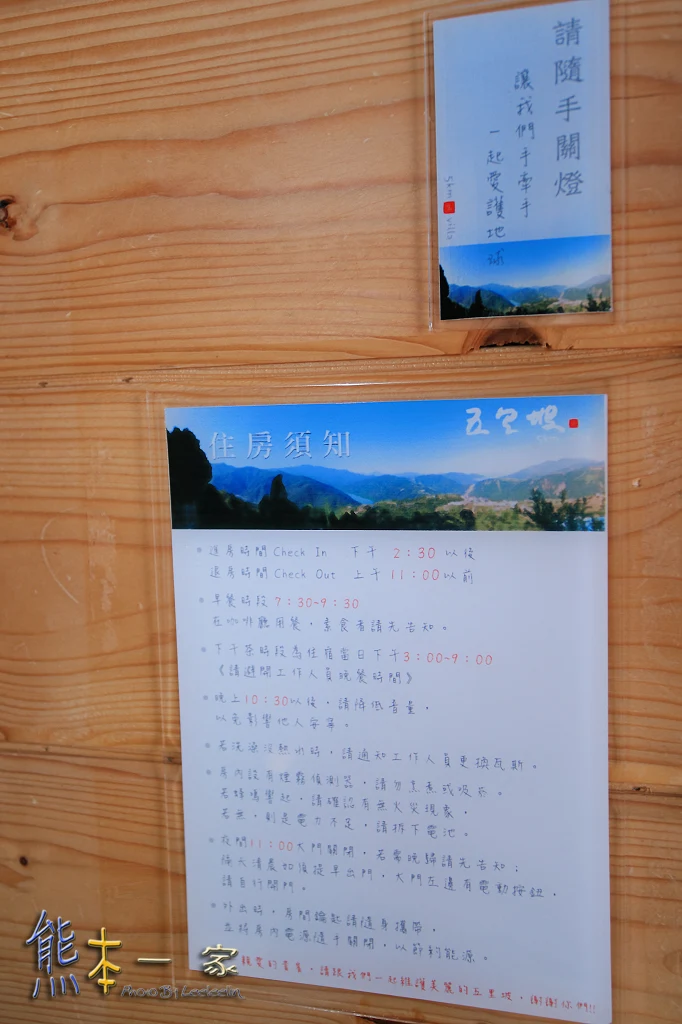 請隨手關燈
讓我們手牽手
一起愛護地球
5km villa
五里坡
住房須知
進房時間 Check In 下午 2:30 以後
退房時間 Check Out 上午 11:00以前
早餐時段 7:30-9:30
在咖啡廳用餐，素食者請先告知。
下午茶時段為住宿當日下午3:00-9:00
《請避開工作人員晚餐時間》
晚上10:30以後，請降低音量，
以免影響他人安寧。
若洗澡沒熱水時，請通知工作人員更換瓦斯。
房內設有煙霧偵測器，請勿烹煮或吸菸。
若蜂鳴響起，請確認有無火災現象，
若無，則是電力不足，請拆下電池。
夜間11:00大門關閉，若需晚歸請先告知；
隔天清晨如後提早出門，大門左邊有電動按鈕，
請自行開門。
外出時，房間鑰匙請隨身攜帶，
並將房內電源隨手關閉，以節約能源。
親愛的貴客，請跟我們一起維護美麗的五里坡，謝謝你們!!
熊本一家
Photo By Leeleelin